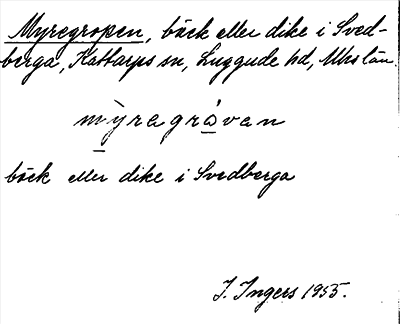 Myregropen, bäck eller dike i Sved-
berga, Kattarps sn, Luggude hd, Mhs län.
mỳragrávan
bäck eller dike i Svedberga
I. Ingers 1955.